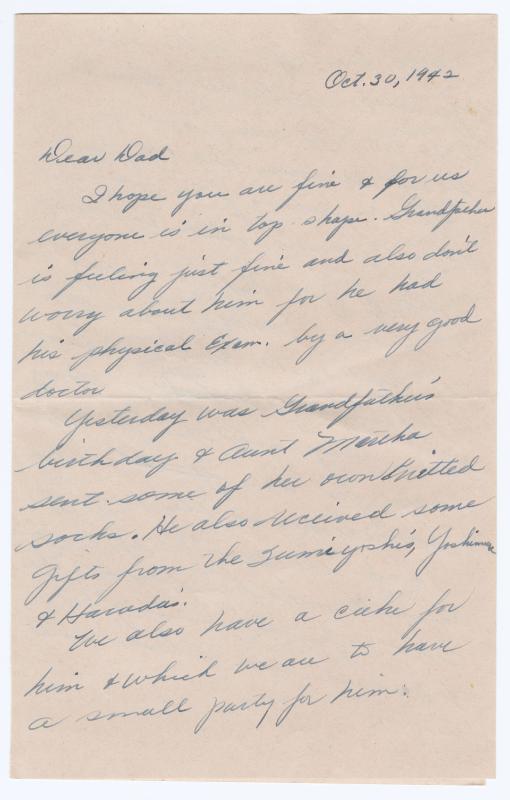 Oct. 30, 1942
Dear Dad
I hope you are fine & for us
everyone is in top shape. Grandfather
is feeling just fine and also don't
worry about him for he had
his physical Exam. by a very good
doctor
Yesterday was Grandfather's
birthday & Aunt Martha
sent some of her own knitted
socks. He also received some
gifts from the Sumiyoshi's,
& Harada's.
We also have a cake for
him & which we are to have
a small party for him.